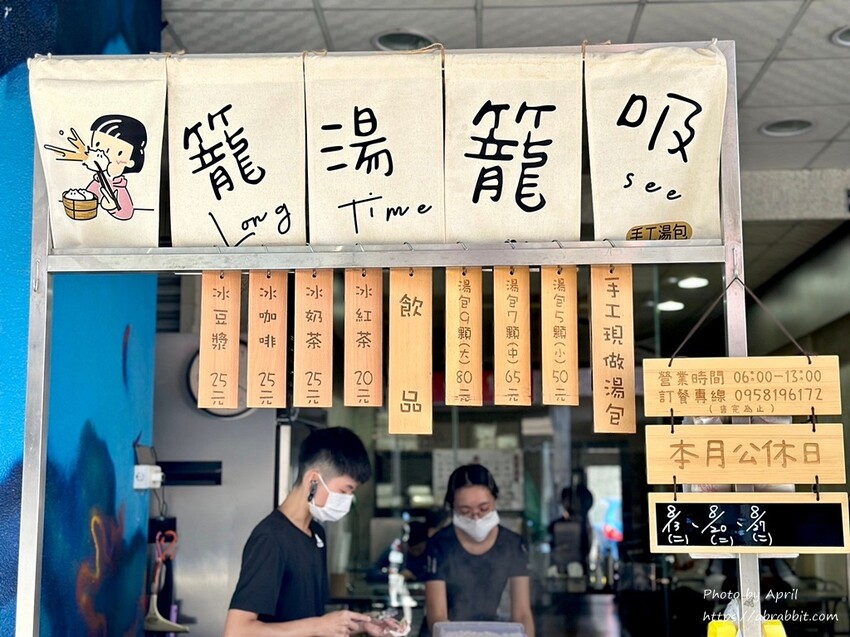 吸籠湯籠
see Time Long
手工湯包
手工現做湯包
湯包5顆(小) 50元
湯包7顆(中) 65元
湯包9顆(大) 80元
飲品
冰紅茶 20元
冰奶茶 25元
冰咖啡 25元
冰豆漿 25元
營業時間 06:00-13:00
訂餐專線 0958196172
(售完為止)
本月公休日
8/13(二)、8/20(二)、8/27(二)
Photo by April
https://abrabbit.com